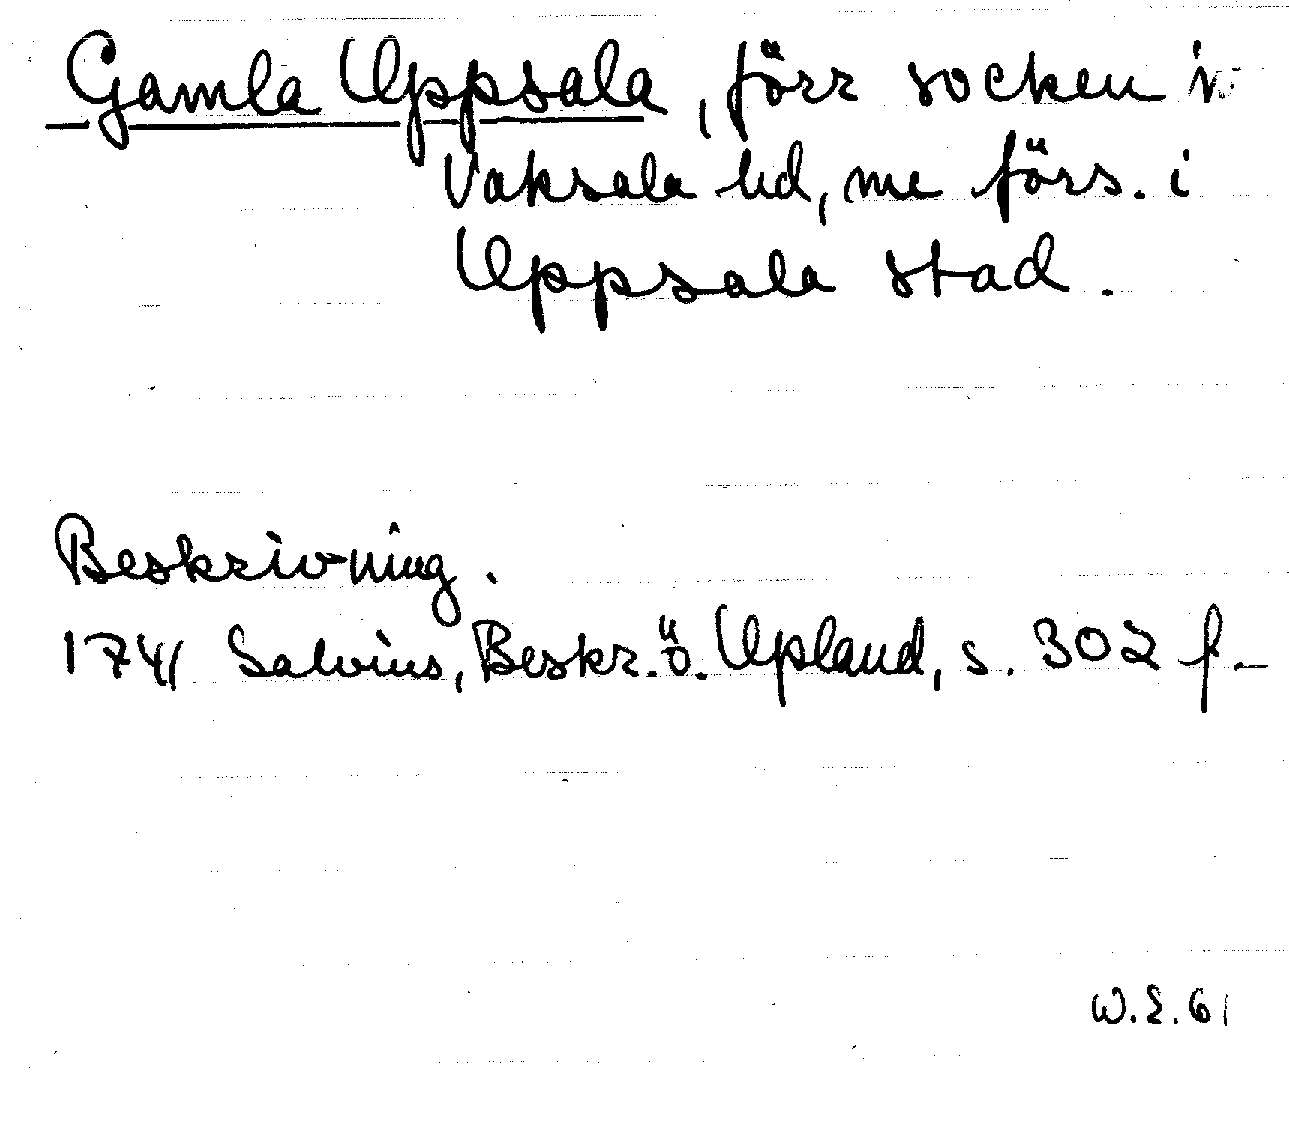 Gamla Uppsala, förr socken i
Vaksala hd, nu förs. i
Uppsala stad.
Beskrivning.
1741 Salvius, Beskr. ö. Upland, s. 302 f.
W.E. 61